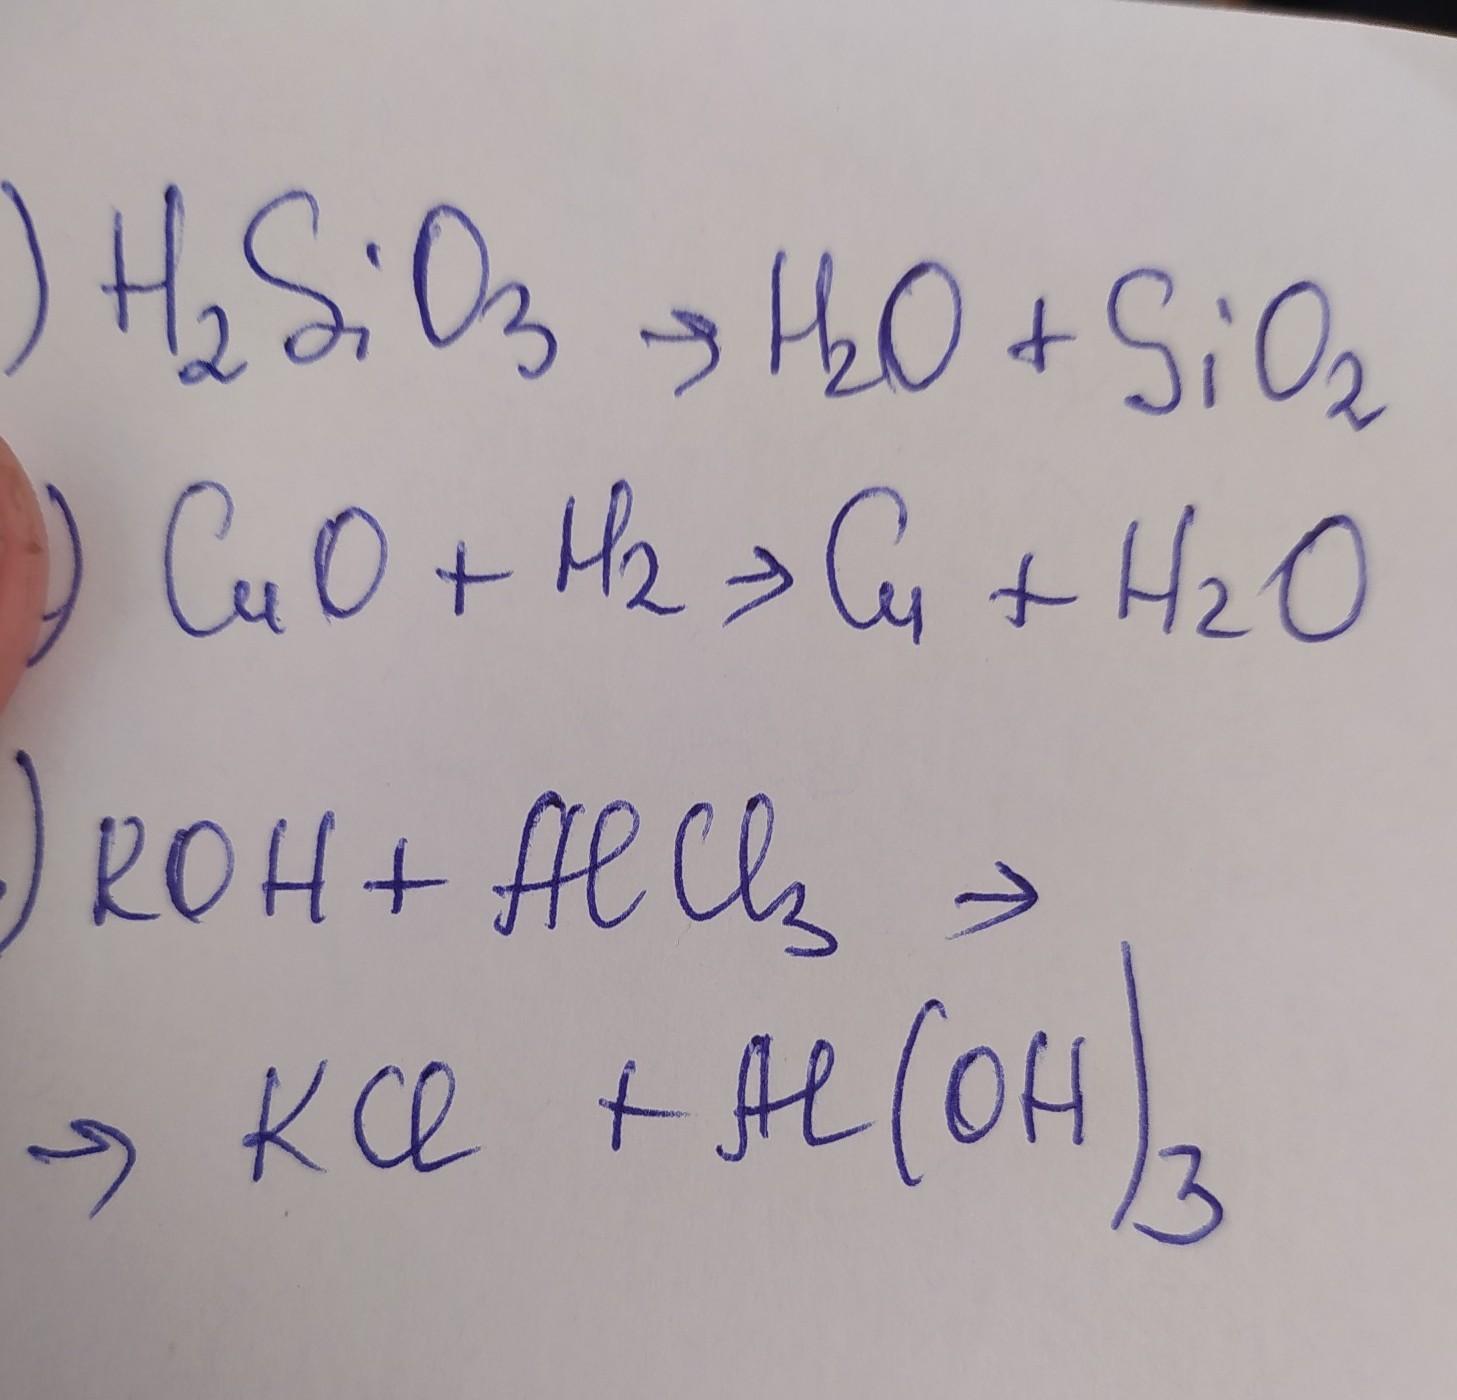 ) H₂SiO₃ → H₂O + SiO₂
) CuO + H₂ → Cu + H₂O
) KOH + AlCl₃ →
→ KCl + Al(OH)₃